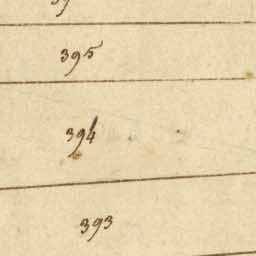 395
394
393